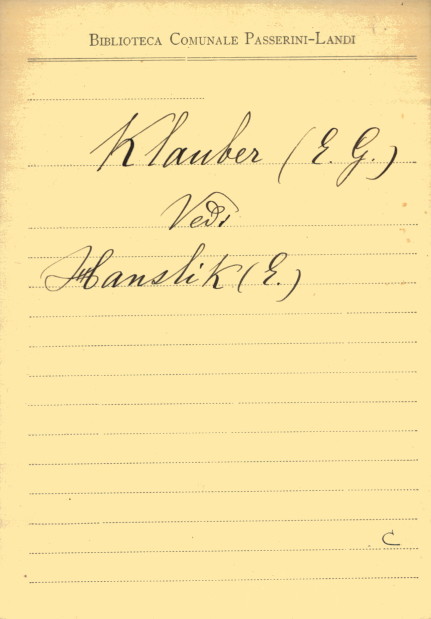 BIBLIOTECA COMUNALE PASSERINI-LANDI
Klauber (E. G.)
Vedi
Hanslik (E.)
C